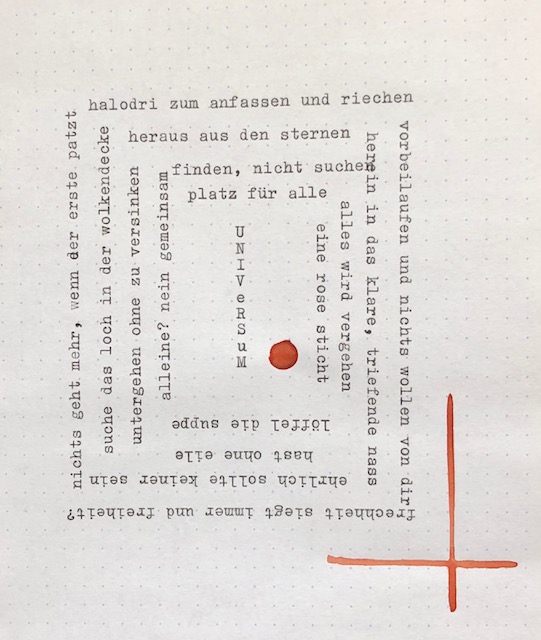 halodri zum anfassen und riechen
vorbeilaufen und nichts wollen von dir
frechheit siegt immer und freiheit?
nichts geht mehr, wenn der erste patzt
heraus aus den sternen
herein in das klare, triefende nass
ehrlich sollte keiner sein
suche das loch in der wolkendecke
finden, nicht suchen
alles wird vergehen
hast ohne eile
untergehen ohne zu versinken
platz für alle
eine rose sticht
löffel die suppe
alleine? nein gemeinsam
UNIVeRSuM